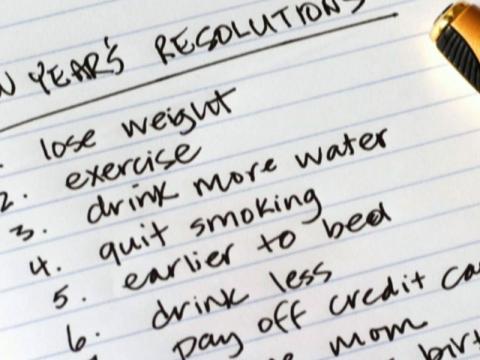 YEAR'S RESOLUTIONS
lose weight
2. exercise
3. drink more water
4. quit smoking
5. earlier to bed
6. drink less
pay off credit ca
mom
birt